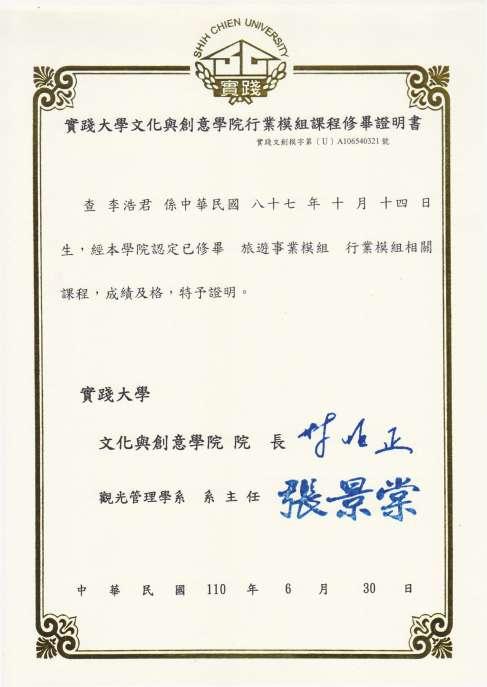 SHIH CHIEN UNIVERSITY
實踐
實踐大學文化與創意學院行業模組課程修畢證明書
實踐文創模字第（U）A106540321 號
查 李浩君 係中華民國 八十七 年 十 月 十四 日
生，經本學院認定已修畢 旅遊事業模組 行業模組相關
課程，成績及格，特予證明。
實踐大學
文化與創意學院 院 長
觀光管理學系 系 主 任 張景棠
中 華 民 國 110 年 6 月 30 日